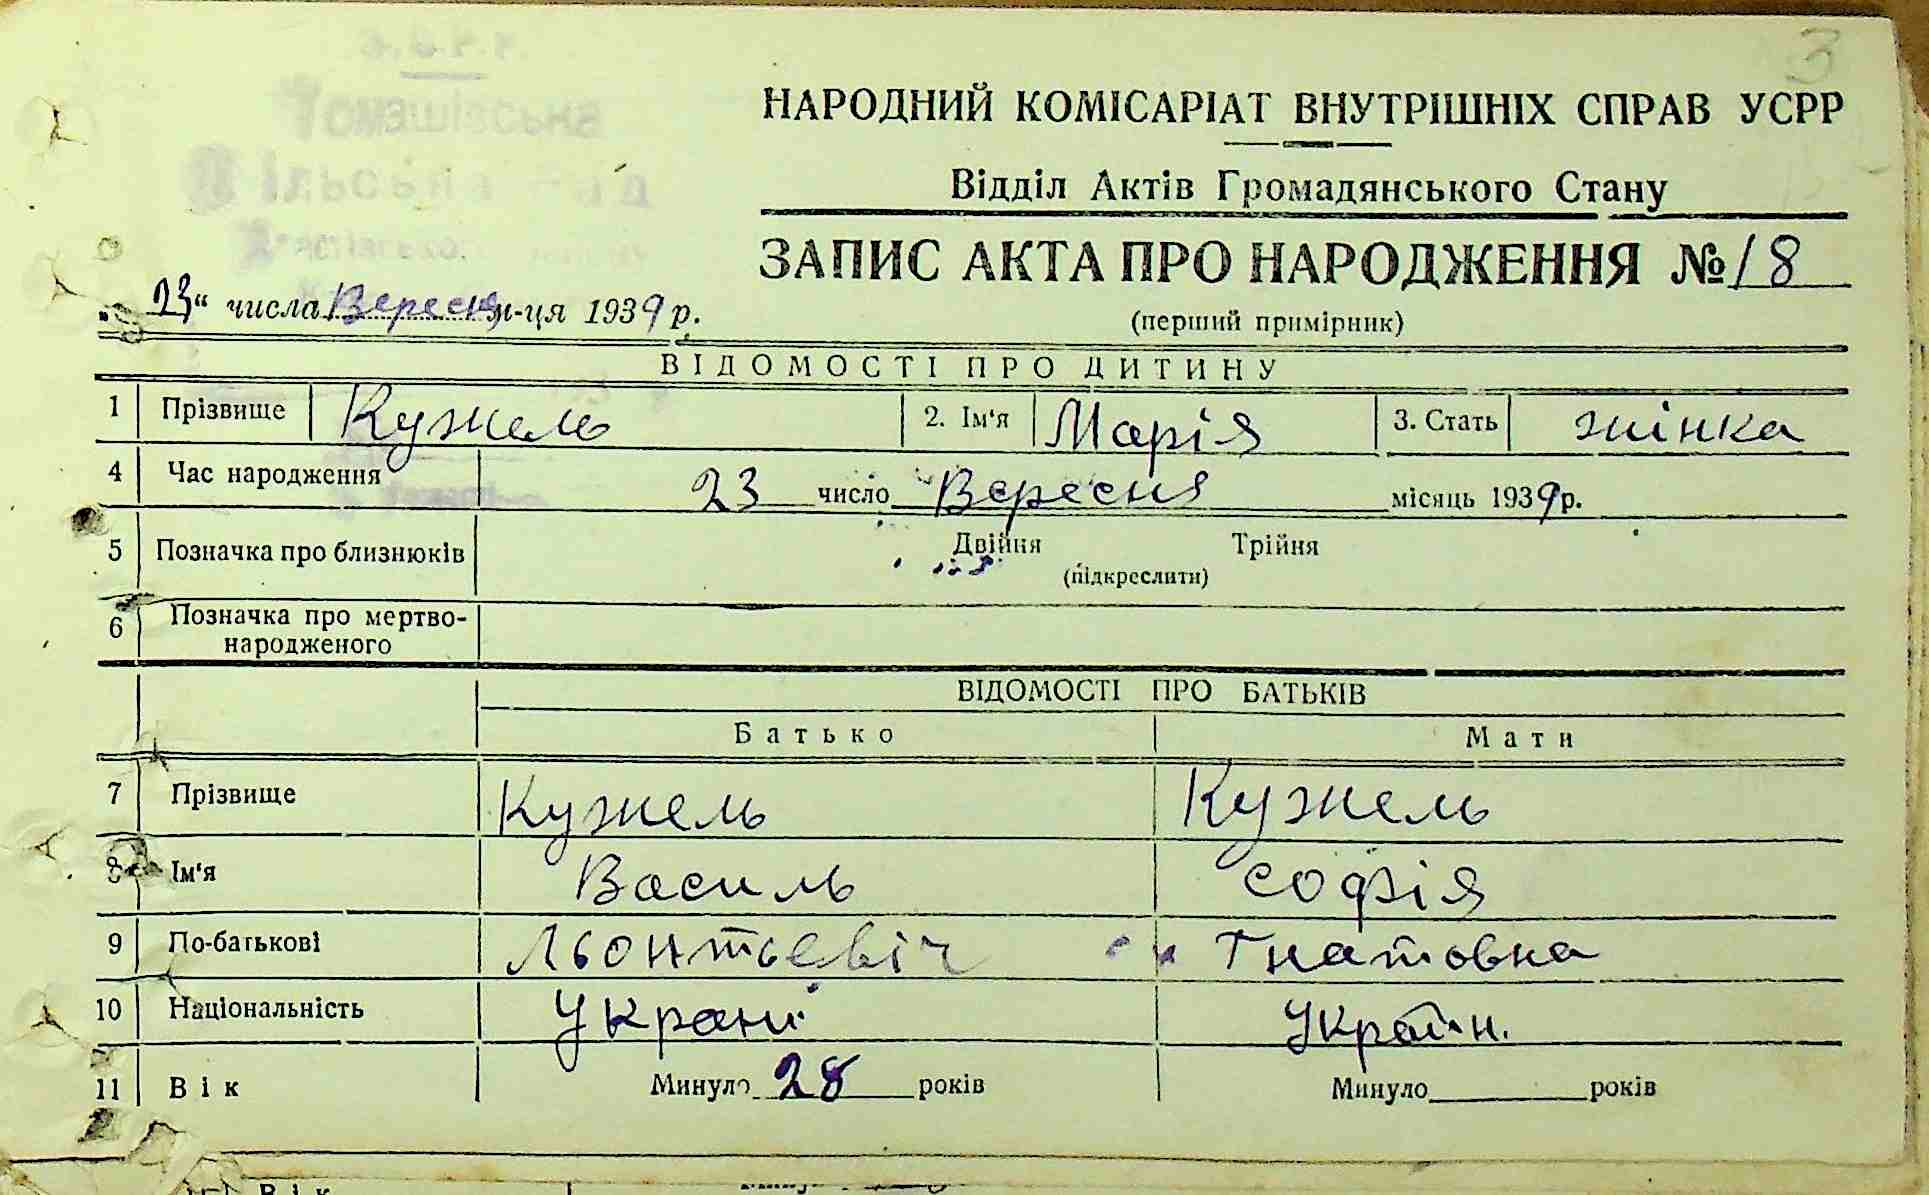 3
НАРОДНИЙ КОМІСАРІАТ ВНУТРІШНІХ СПРАВ УСРР
Відділ Актів Громадянського Стану
ЗАПИС АКТА ПРО НАРОДЖЕННЯ № 18
„23“ числа Вересня м-ця 1939 р.
(перший примірник)
ВІДОМОСТІ ПРО ДИТИНУ
1 Прізвище Кужель 2. Ім'я Марія 3. Стать жінка
4 Час народження 23 число Вересня місяць 1939 р.
5 Позначка про близнюків Двійня Трійня
(підкреслити)
6 Позначка про мертво-
народженого
ВІДОМОСТІ ПРО БАТЬКІВ
Батько Мати
7 Прізвище Кужель Кужель
8 Ім'я Василь Софія
9 По-батькові Льонтьевіч Гнатовна
10 Національність Украні Україн.
11 Вік Минуло 28 років Минуло років
Вік